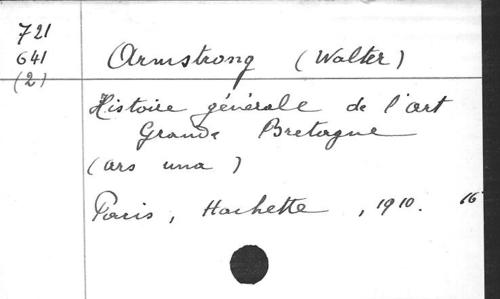 721
641 Armstrong (Walter)
(2)
Histoire générale de l'art
Grande Bretagne
(ars una)
Paris, Hachette, 1910. 16°